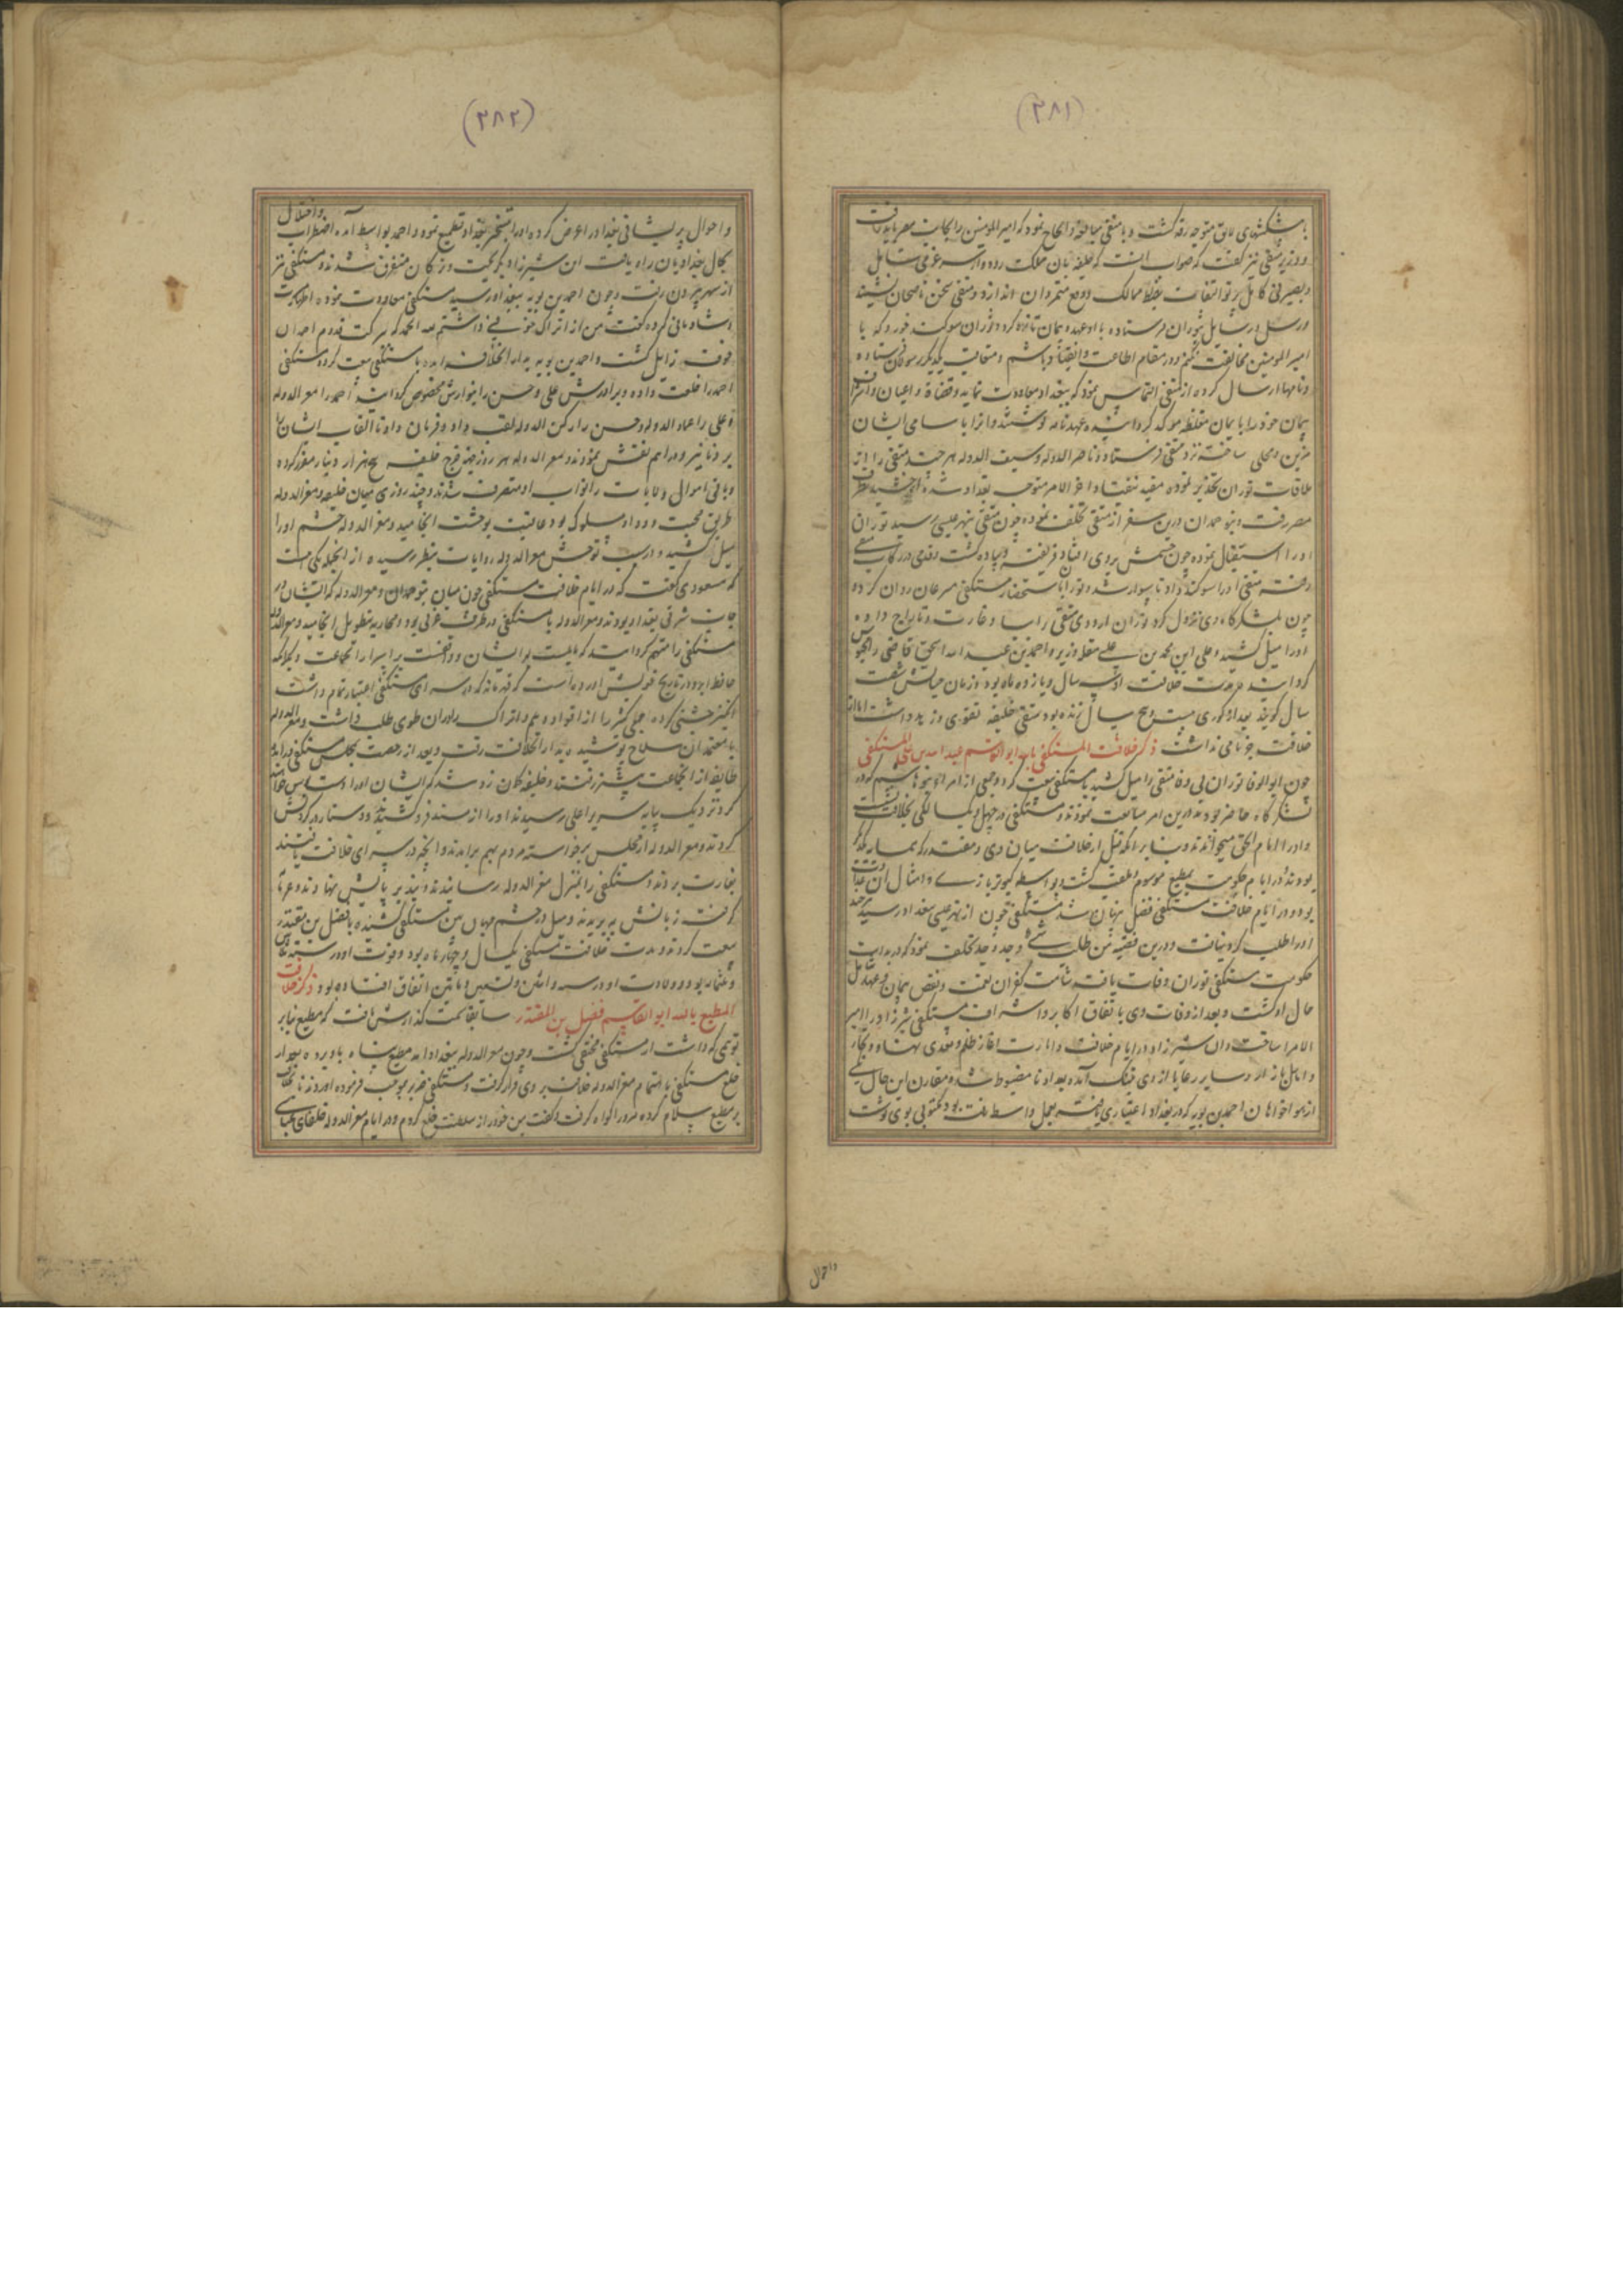 (۳۸۱)
با پیشکشهای لایق متوجه رقه گشت و با متقی مبالغه و الحاح نمود که امیرالمومنین را بجانب مصر باید رفت
و وزیر متقی نیز گفت که صواب آنست که خلیفه بآن مملکت رود و از سر عرفی شامل
و بصیرتی کامل پرتو التفات بضبط ممالک و دفع متمردان اندازد و متقی سخن ناصحان نشنیده
و رسل و رسایل بتوران فرستاده با او عهد و پیمان تازه کرد و توران سوگند خورد که با
امیرالمومنین مخالفت نکنم و در مقام اطاعت و انقیاد باشم و متعاقب یکدیگر رسولان فرستاده
و نامها ارسال کرده از متقی التماس نمود که ببغداد معاودت نماید و قضاة و اعیان و اشراف
پیمان خود را بایمان مغلظه موکد گردانیده عهدنامه نوشتند و آنرا باسامی ایشان
مزین و محلی ساخته نزد متقی فرستاد و ناصرالدوله و سیف الدوله هر چند متقی را از
ملاقات توران تحذیر نمودند مفید نیفتاد و آخر الامر متوجه بغداد شد و اخشید بطرف
مصر رفت و بنو حمدان درین سفر از متقی تخلف نمودند چون متقی بنهر عیسی رسید توران
او را استقبال نموده چون چشمش بروی افتاد فریفته و پیاده گشت و قدمی در رکاب متقی
رفته متقی او را سوگند داد تا سوار شد و توران باستحضار مستکفی مسرعان روان کرده
چون بلشکرگاه وی نزول کرد توران اردوی متقی را بباد غارت و تاراج داده
او را میل کشید و علی ابن محمد بن علی مقله وزیر و احمد بن عبدالله اسحق قاضی را محبوس
گردانید مدت خلافت او سه سال و یازده ماه بود و زمان حیاتش شصت
سال گویند بعد از کوری بیست و پنج سال زنده بود متقی خلیفه تقوی و زید داشت اما از
خلافت جز نامی نداشت ذکر خلافت المستکفی بالله ابوالقاسم عبدالله بن علی المکتفی
چون ابوالوفا توران بی وفا متقی را میل کشید با مستکفی بیعت کرد و جمعی از امرا و بنو هاشم که در
لشکرگاه حاضر بودند درین امر متابعت نمودند و مستکفی در چهل و یک سالگی بخلافت نشست
و او را امام الحق میخواندند و بنابر آنکه قبل از خلافت میان وی و مقتدر که همسایه یکدگر
بودند و در ایام حکومت بمطیع موسوم و ملقب گشت بواسطه کبوتربازی و امثال آن عداوت
بود و در ایام خلافت مستکفی فضل پنهان شد مستکفی چون از نهر عیسی ببغداد رسید هر چند
او را طلب کرد نیافت و درین قضیه من طلب شیئا و جد وجد تخلف نمود که در بدایت
حکومت مستکفی توران وفات یافت شامت کفران نعمت و نقض پیمان و عهد شامل
حال او گشت و بعد از وفات وی باتفاق اکابر و اشراف مستکفی شیرزاد را امیر
الامرا ساخت و ابن شیرزاد در ایام خلافت و امارت آغاز ظلم و تعدی نهاد و تجار
و اهل بازار و سایر رعایا از وی بتنگ آمدند بغداد نامضبوط شد و مقارن این حال یکی
از هواخواهان احمد بن بویه که در بغداد اعتباری یافته بعمل واسط رفته بود مکتوبی بوی نوشت
واحوال
(۳۸۲)
و احوال پریشانی بغداد را عرض کرده او را بتسخیر بغداد تطمیع نمود و احمد بواسط آمده اضطراب و اختلال
بحال بغدادیان راه یافت ابن شیرزاد بگریخت و ترکان متفرق شدند و مستکفی نیز
از شهر بیرون رفت و چون احمد بن بویه ببغداد رسید مستکفی معاودت نموده اظهار بهجت
و شادمانی کرده گفت من از اتراک خوفی داشتم لله الحمد که ببرکت قدوم احمد آن
خوف زایل گشت و احمد بن بویه بدار الخلافه آمده با مستکفی بیعت کرده مستکفی
احمد را خلعت داده و برادرش علی و حسن را بنوازش مخصوص گردانید احمد را معزالدوله
و علی را عماد الدوله و حسن را رکن الدوله لقب داد و فرمان داد تا القاب ایشان را
بر دنانیر و دراهم نقش نمودند و معزالدوله هر روز جهة خرج خلیفه پنج هزار دینار مقرر کرده
و باقی اموال و ولایات را نواب او متصرف شدند و چند روزی میان خلیفه و معزالدوله
طریق محبت و وداد مسلوک بود عاقبت بوحشت انجامید و معزالدوله چشم او را
میل کشید و در سبب توحش معزالدوله روایات بنظر رسیده از آنجمله یکی آنست
که مسعودی گفت که در ایام خلافت مستکفی چون میان بنو حمدان و معزالدوله که ایشان در
جانب شرقی بغداد بودند و معزالدوله با مستکفی در طرف غربی بود و محاربه بتطویل انجامید و معزالدوله
مستکفی را متهم گردانید که مایلست بایشان و واقفست بر اسرار آن جماعت و دیگر آنکه
حافظ ابرو در تاریخ خویش آورده است که قهرمانه که در سرای مستکفی اعتبار تمام داشت
جشنی کرده جمعی کثیر را از اقوام دیلم و اتراک در آن طوی طلب داشت و معزالدوله
با معتمدان سلاح پوشیده بدار الخلافت رفت و بعد از رخصت بمجلس مستکفی درآمده
طایفه از آن جماعت پیشتر رفتند و خلیفه گمان زد شد که ایشان او را دست بوس خواهند
کرد نزدیک بپایه سریر اعلی رسیدند او را از مسند فرو کشیدند و دستار در گردنش
کردند و معزالدوله از مجلس برخواسته مردم بهم برآمدند و آنچه در سرای خلافت یافتند
بغارت بردند و مستکفی را بمنزل معزالدوله رسانیدند و بند بر پایش نهادند و عرف
گرفت زبانش ببریدند و میل در چشم جهان بین مستکفی کشیده با فضل بن مقتدر
بیعت کردند و مدت خلافت مستکفی یک سال و چهار ماه بود و فوت او در سنه ثمان
و ثلثمائه بود و ولادت او در سنه و اثنی و تسعین و مأتین اتفاق افتاده بود ذکر خلافت
المطیع بالله ابوالقاسم فضل بن المقتدر سابقا سمت گذارش یافت که مطیع بنابر
توهمی که داشت از مستکفی مختفی گشت و چون معزالدوله ببغداد آمد مطیع پناه باو برده بعد از
خلع مستکفی باهتمام معزالدوله خلافت بر وی قرار گرفت و مستکفی ضریر بموجب فرموده آورد تا بخلافت
بر مطیع سلام کرده مردم را گواه گرفت و گفت من خود را از سلطنت خلع کردم و در ایام معزالدوله خلفای عباسی